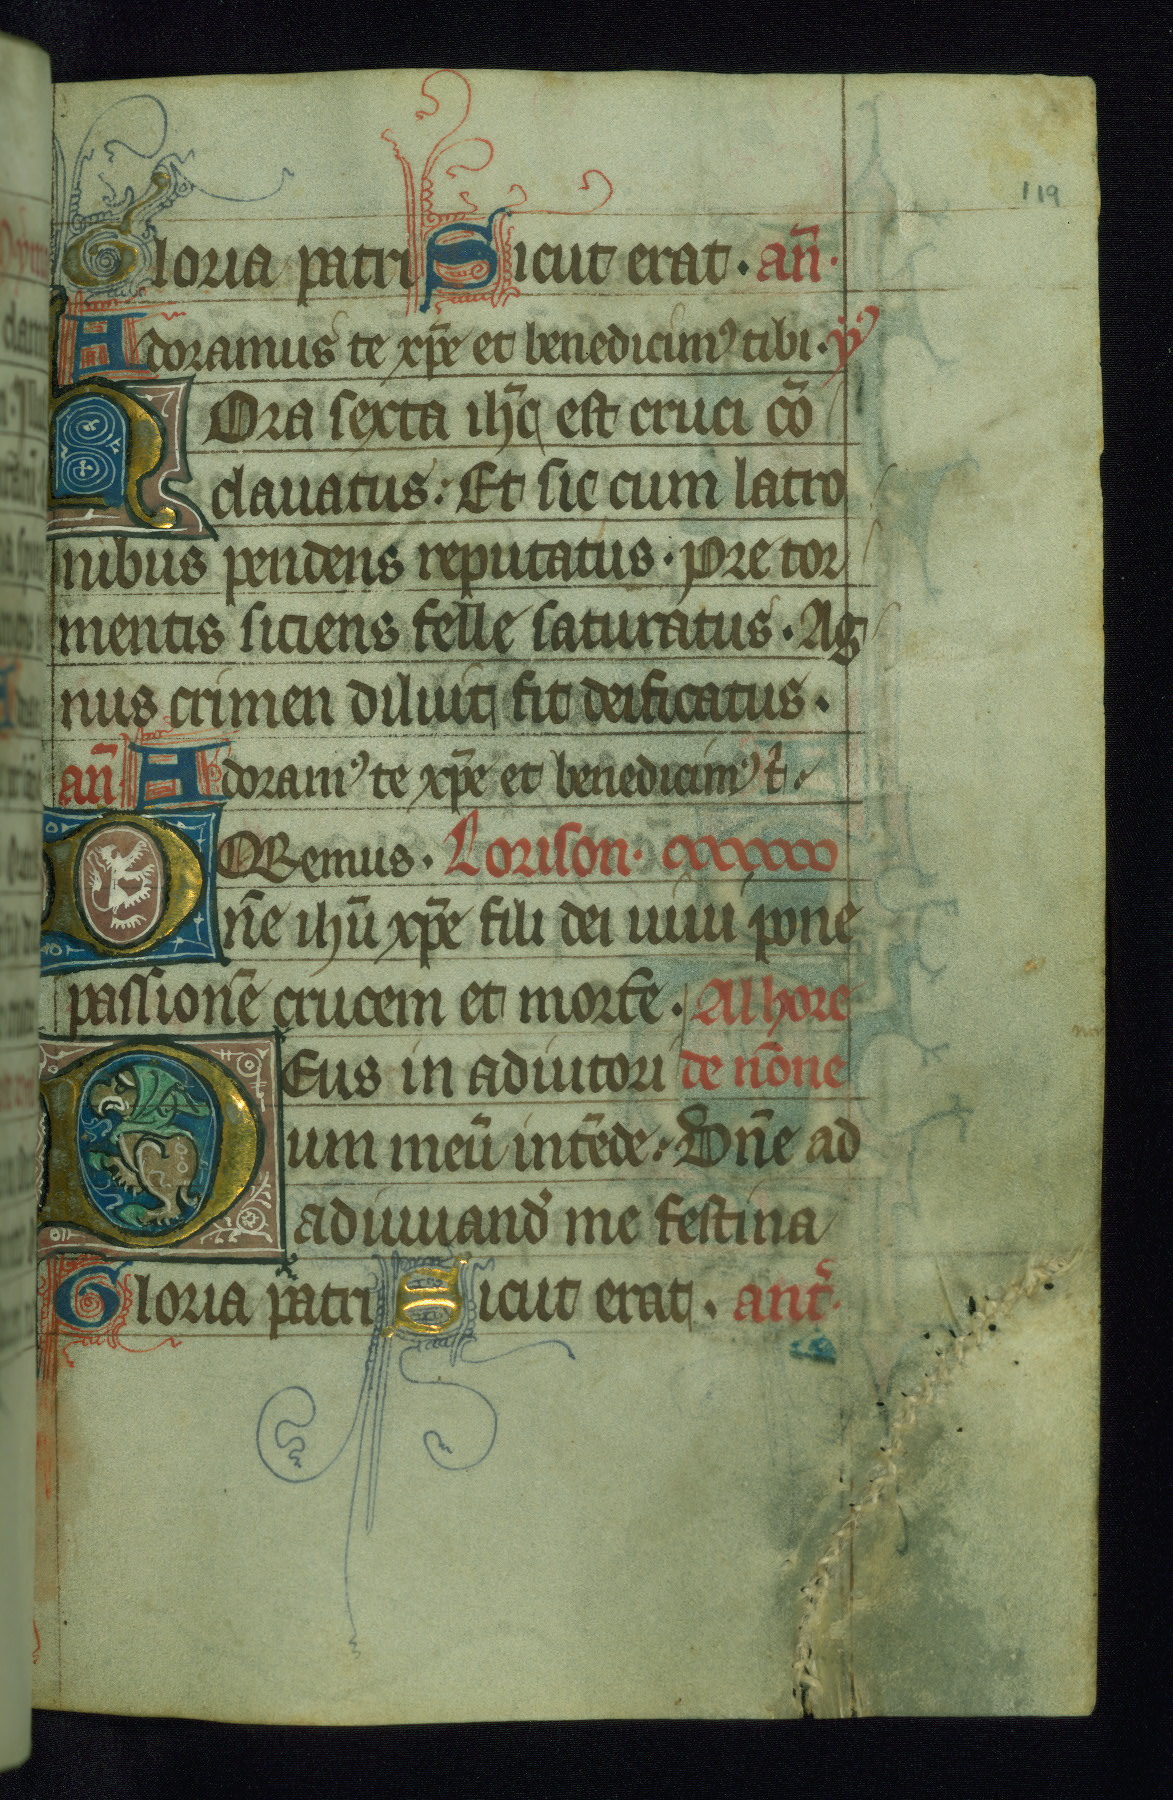 119
Gloria patri Sicut erat · an̄ ·
Adoramus te xp̄e et benedicimꝰ tibi · ℣
HOra sexta ih̄c est cruci cō
clauatus : Et sic cum latro
nibus pendens reputatus · Pre tor
mentis siciens felle saturatus · Ag
nus crimen diluit fit deificatus ·
an̄ Adoramꝰ te xp̄e et benedicimꝰ t ·
ORemus · Lorison ·
Dn̄e ih̄u xp̄e fili dei uiui pone
passionē crucem et mortē · Al hore
DEus in adiutori de nōne
um meū intēde · Dn̄e ad
adiuuand me festina
Gloria patri Sicut erat · ant ·